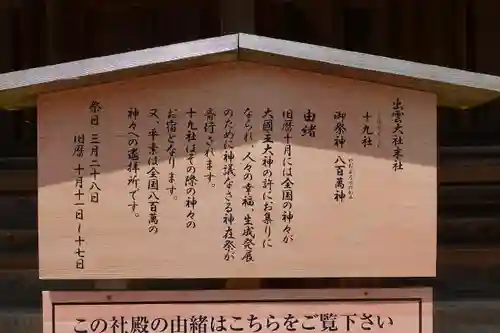 出雲大社末社
十九社
御祭神 八百萬神
由緒
旧暦十月には全国の神々が
大國主大神の許にお集りに
なられ、人々の幸福、生成発展
のために神議なさる神在祭が
斎行されます。
十九社はその際の神々の
お宿となります。
又、平素は全国八百萬の
神々への遙拝所です。
祭日 三月二十八日
旧暦 十月十一日〜十七日
この社殿の由緒はこちらをご覧下さい